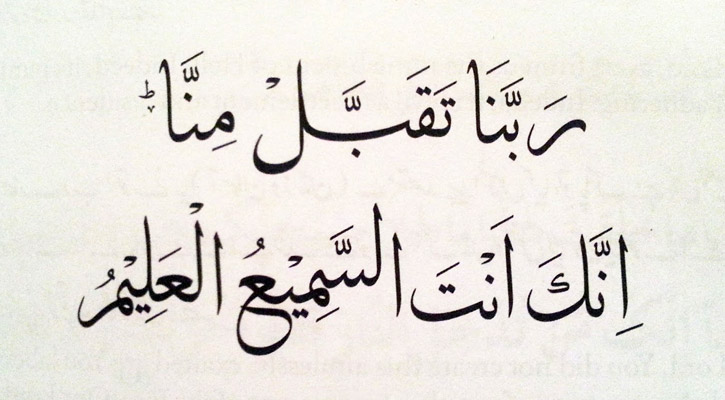 ربَّنَا تَقَبَّلْ مِنَّاؕ
اِنَّكَ اَنْتَ السَّمِيْعُ الْعَلِيْمُ